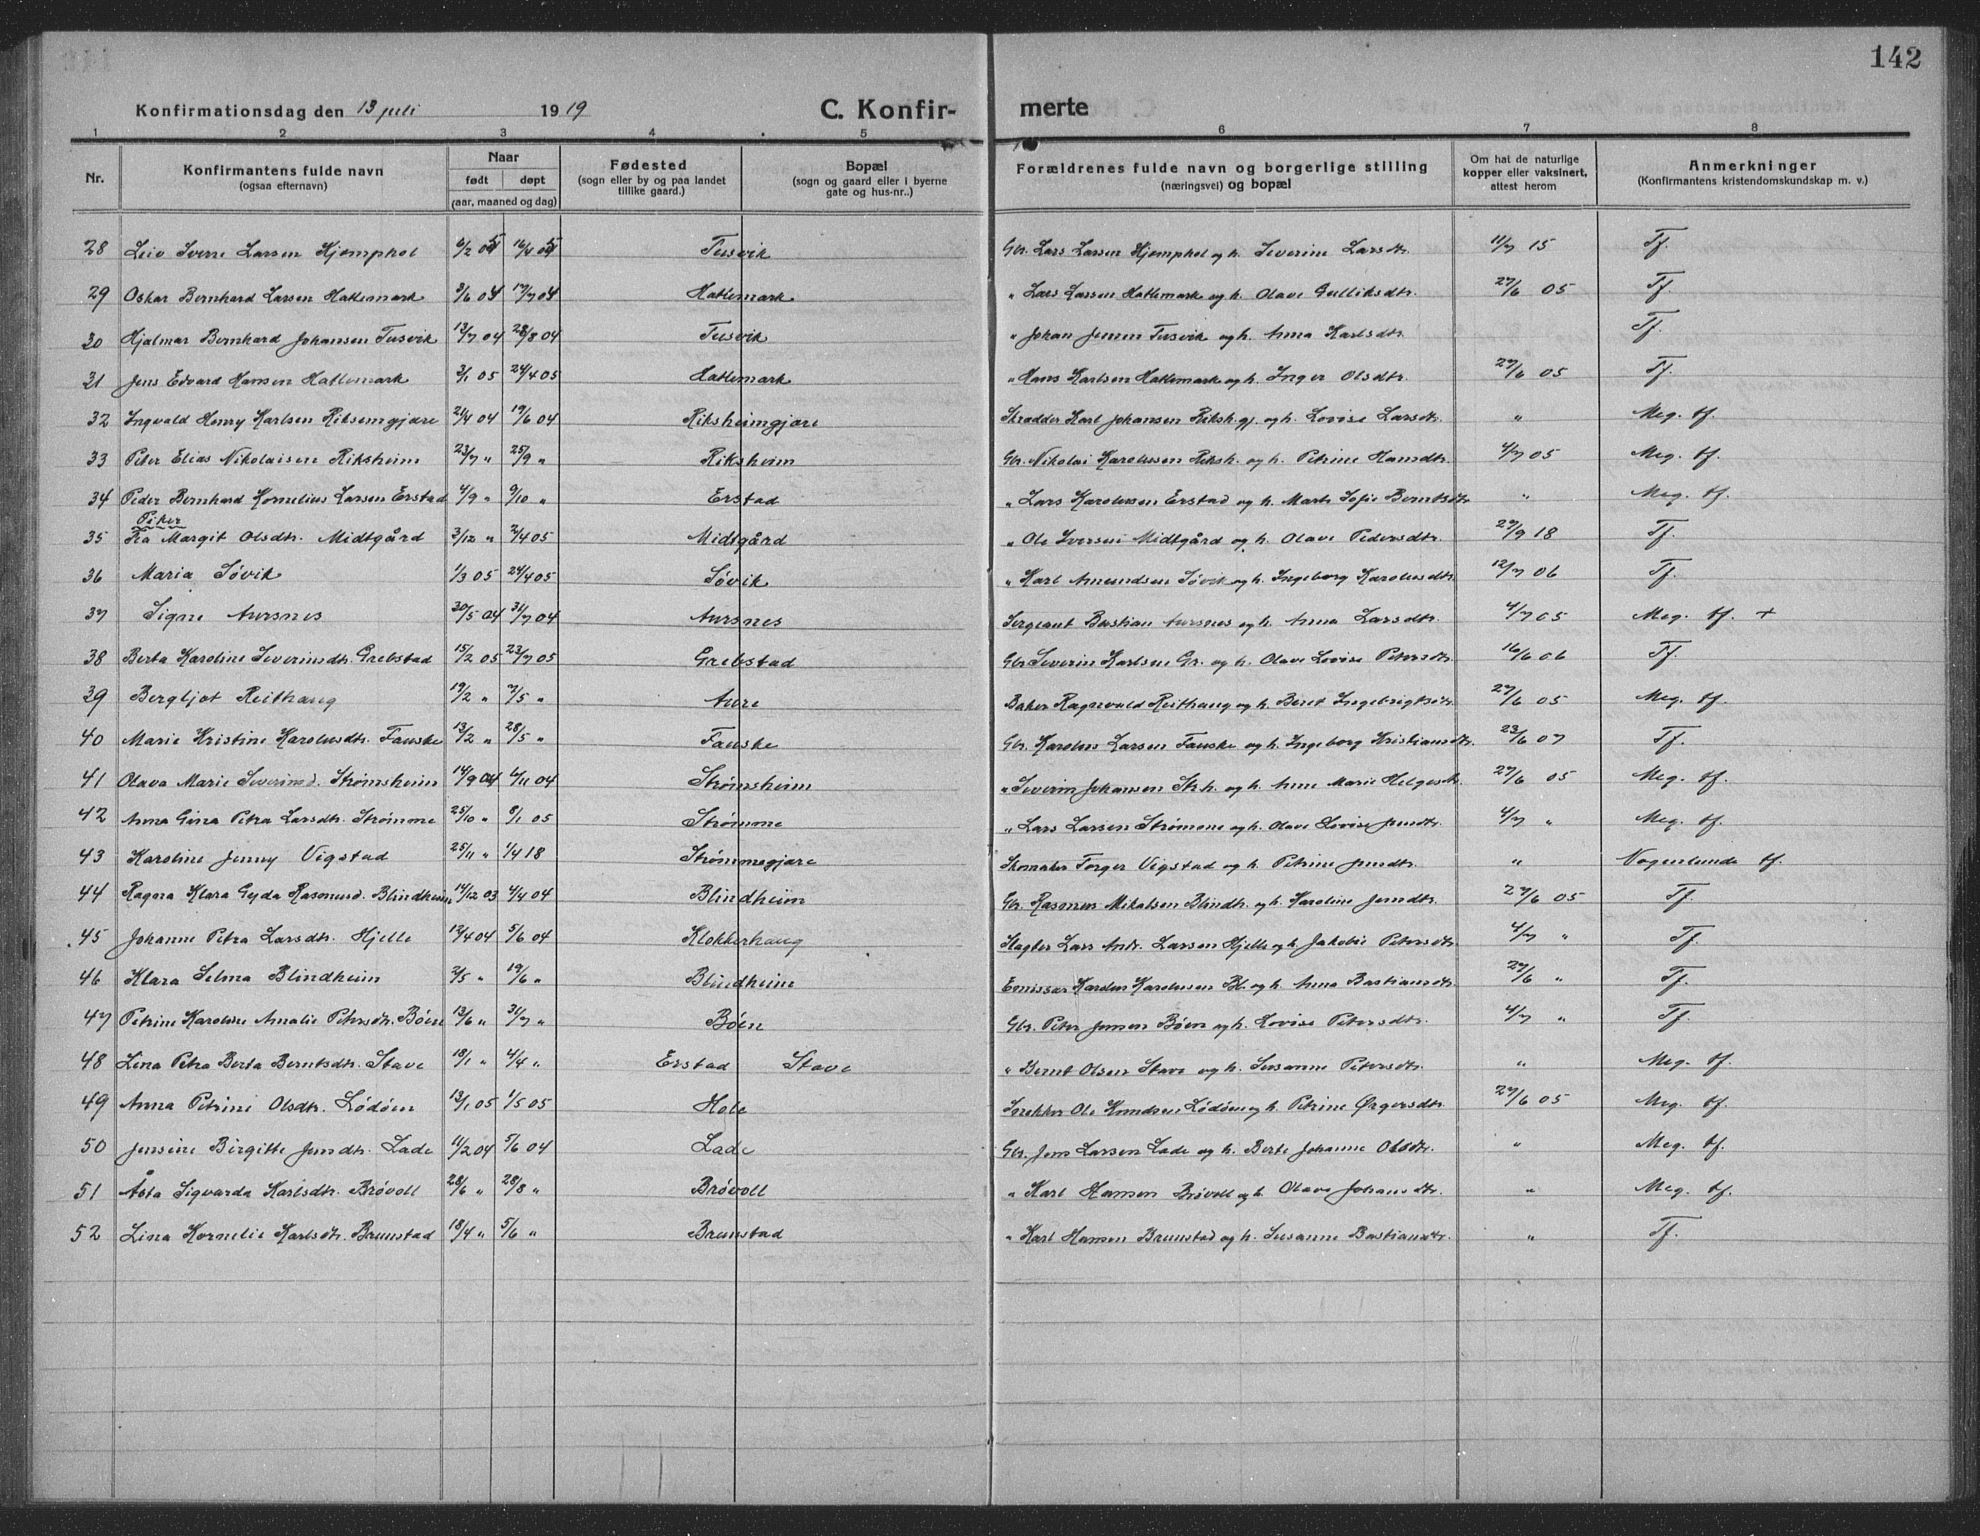 142
Konfirmationsdag den 13 juli 1919 C. Konfir- merte
1 2 3 4 5 6 7 8
Nr. Konfirmantens fulde navn (ogsaa efternavn) Naar født døpt (aar, maaned og dag) Fødested (sogn eller by og paa landet tillike gaard.) Bopæl (sogn og gaard eller i byerne gate og hus-nr..) Forældrenes fulde navn og borgerlige stilling (næringsvei) og bopæl Om hat de naturlige kopper eller vaksinert, attest herom Anmerkninger (Konfirmantens kristendomskundskap m. v.)
28 Leiv Sverre Larsen Hjemphol 6/2 05 16/4 05 Tusvik Gbr. Lars Larsen Hjemphol og h. Severine Larsdtr. 11/7 15 Tf.
29 Oskar Bernhard Larsen Hatlemark 3/6 04 17/7 04 Hatlemark " Lars Larsen Hatlemark og h. Olave Gulliksdtr. 27/6 05 Tf.
30 Hjalmar Bernhard Johansen Tusvik 13/7 04 28/8 04 Tusvik " Johan Jensen Tusvik og h. Anna Karlsdtr. Tf.
31 Jens Edvard Hansen Hatlemark 3/1 05 24/4 05 Hatlemark " Hans Karlsen Hatlemark og h. Inger Olsdtr. 27/6 05 Tf.
32 Ingvald Henry Karlsen Riksemgjære 21/4 04 19/6 04 Riksheimgjære Skrædder Karl Johansen Riksh.gj. og h. Lovise Larsdtr. " Meg. tf.
33 Peter Elias Nikolaisen Riksheim 23/7 " 25/9 " Riksheim Gbr. Nikolai Karolussen Riksh. og h. Petrine Hansdtr. 4/7 05 Meg. tf.
34 Peder Bernhard Kornelius Larsen Erstad 4/9 " 9/10 " Erstad " Lars Karolussen Erstad og h. Marte Sofie Berntsdtr. " Meg. tf.
Piker
35 Pia Margit Olsdtr. Midtgård 3/12 " 2/4 05 Midtgård " Ole Iversen Midtgård og h. Olave Pedersdtr. 27/9 18 Tf.
36 Maria Søvik 1/3 05 24/4 05 Søvik " Karl Amundsen Søvik og h. Ingeborg Karolusdtr. 12/7 06 Tf.
37 Signe Aursnes 30/5 04 31/7 04 Aursnes Sergeant Bastian Aursnes og h. Anna Larsdtr. 4/7 05 Meg. tf. +
38 Berta Karoline Severinsdtr. Grebstad 15/2 05 23/7 05 Grebstad Gbr. Severin Karlsen Gr. og h. Olave Lovise Petersdtr. 16/6 06 Tf.
39 Bergljot Reithaug 19/2 " 7/5 " Aure Baker Ragnvald Reithaug og h. Beret Ingebrigtsdtr. 27/6 05 Meg. tf.
40 Marie Kristine Karolusdtr. Fauske 13/2 " 28/5 " Fauske Gbr. Karolus Larsen Fauske og h. Ingeborg Kristiansdtr. 23/6 07 Tf.
41 Olava Marie Severinsd. Strømsheim 14/9 04 6/11 04 Strømsheim " Severin Johansen Str.h. og h. Anne Marie Helgesdtr. 27/6 05 Meg. tf.
42 Anna Gina Petra Larsdtr. Strømme 25/10 " 8/1 05 Strømme " Lars Larsen Strømme og h. Olave Lovise Jensdtr. 4/7 " Meg. tf.
43 Karoline Jenny Vigstad 25/11 " 1/4 18 Strømmegjære Skomaker Torger Vigstad og h. Petrine Jensdtr. " Nogenlunde tf.
44 Ragna Klara Gyda Rasmusd. Blindheim 14/12 03 4/4 04 Blindheim Gbr. Rasmus Mikalsen Blindh. og h. Karoline Jensdtr. 27/6 05 Tf.
45 Johanne Petra Larsdtr. Hjelle 12/4 04 5/6 04 Klokkerhaug Lars Andr. Larsen Hjelle og h. Jakobie Petersdtr. 4/7 " Tf.
46 Klara Selma Blindheim 2/5 " 19/6 " Blindheim Emissær Karolus Karolusen Bl. og h. Anna Bastiansdtr. 27/6 " Tf.
47 Petrine Karoline Amalie Petersdtr. Bøen 13/6 " 31/7 " Bøen Gbr. Peter Jensen Bøen og h. Lovise Petersdtr. 4/7 " Tf.
48 Lina Petra Berta Berntsdtr. Stave 18/1 " 4/4 " Erstad Stave " Bernt Olsen Stave og h. Susanne Petersdtr. " Meg. tf.
49 Anna Petrine Olsdtr. Lødøen 13/1 05 1/5 05 Hole Snekker Ole Knudsen Lødøen og h. Petrine Ørgersdtr. 27/6 05 Meg. tf.
50 Jensine Birgitte Jensdtr. Lade 11/2 04 5/6 04 Lade Gbr. Jens Larsen Lade og h. Berte Johanne Olsdtr. " Meg. tf.
51 Åsta Sigvarda Karlsdtr. Brøvoll 28/6 " 28/8 " Brøvoll " Karl Hansen Brøvoll og h. Olave Johansdtr. " Meg. tf.
52 Lina Kornelie Karlsdtr. Brunstad 18/4 " 5/6 " Brunstad " Karl Hansen Brunstad og h. Susanne Bastiansdtr. " Tf.